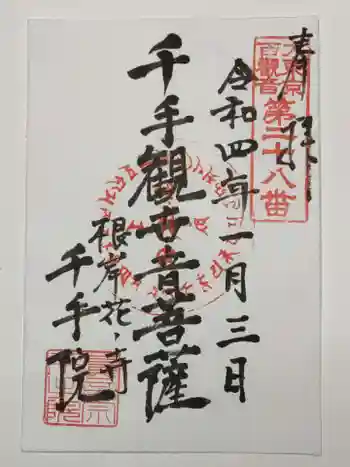 奉拝
大東京
百観音
第二十八番
令和四年一月三日
千手観世音菩薩
根岸花ノ寺
千手院